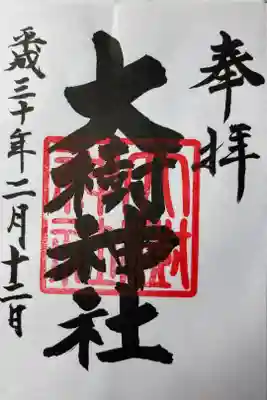 奉拝
大樹神社
平成三十年二月十二日